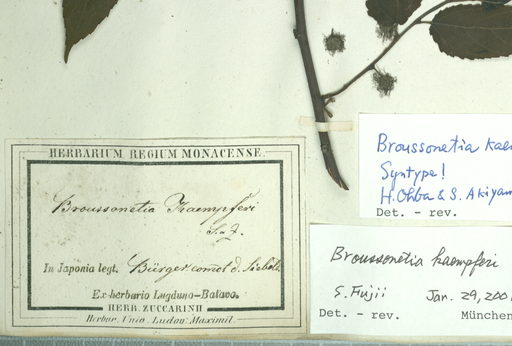 HERBARIUM REGIUM MONACENSE.
Broussonetia Kaempferi
S. & Z.
In Japonia legt. Bürger comot d. Siebold.
Ex herbario Lugduno-Batavo.
HERB. ZUCCARINII
Herbar. Univ. Ludov. Maximil.
Broussonetia kaem
Syntype!
H. Ohba & S. Akiyam
Det. - rev.
Broussonetia kaempferi
S. Fujii Jan. 29, 200
Det. - rev. München